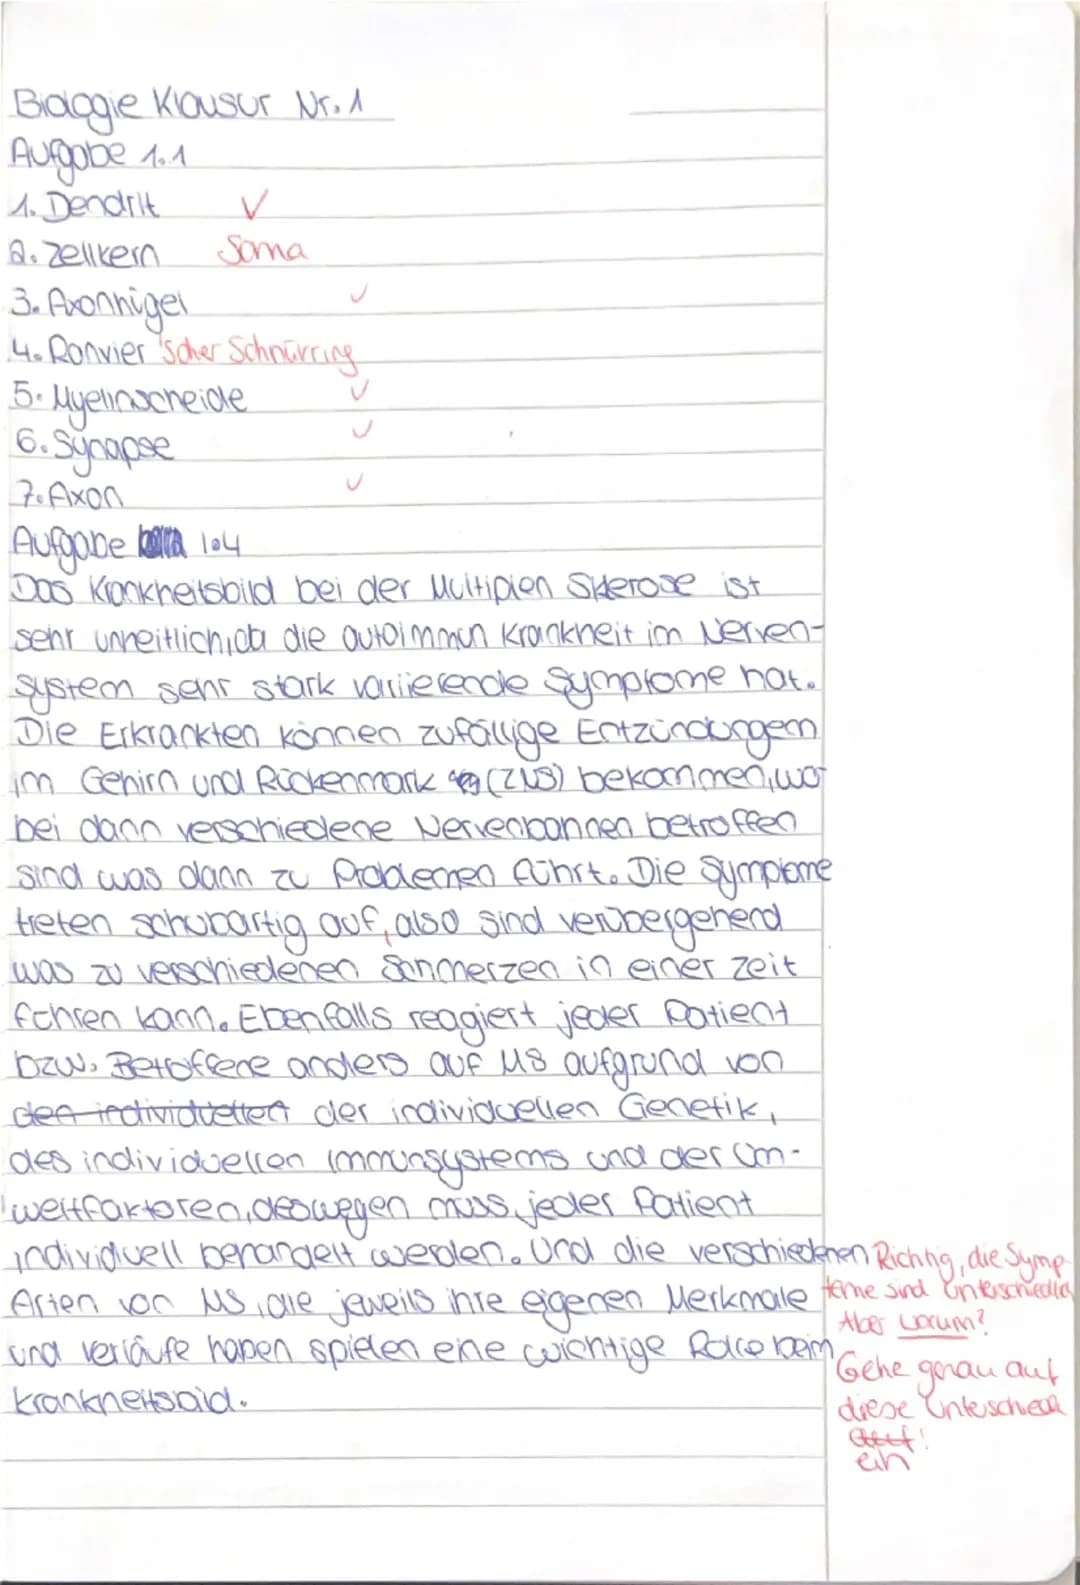 Biologie Klausur Nr. 1
Aufgabe 1.1
1. Dendrit ✓
2. Zellkern Soma
3. Axonhügel ✓
4. Ranvier 'scher Schnürring
5. Myelinscheide ✓
6. Synapse ✓
7. Axon ✓
Aufgabe 1.4
Das Krankheitsbild bei der Multiplen Sklerose ist
sehr unheitlich, da die autoimmun Krankheit im Nerven-
system sehr stark variierende Symptome hat.
Die Erkrankten können zufällige Entzündungen
im Gehirn und Rückenmark (ZNS) bekommen, wo
bei dann verschiedene Nervenbahnen betroffen
sind was dann zu Problemen führt. Die Symptome
treten schubartig auf, also sind verübergehend
was zu verschiedenen Schmerzen in einer Zeit
führen kann. Ebenfalls reagiert jeder Patient
bzw. Betroffene anders auf MS aufgrund von
den individuellen der individuellen Genetik,
des individuellen Immunsystems und der Um-
weltfaktoren, deswegen muss jeder Patient
individuell behandelt werden. Und die verschiedenen
Arten von MS, die jeweils ihre eigenen Merkmale
und verläufe haben spielen eine wichtige Rolle beim
Krankheitsbild.
Richtig, die Symp
tome sind unterschiedlich
Aber warum?
Gehe genau auf
diese Unterschiede
auf!
ein